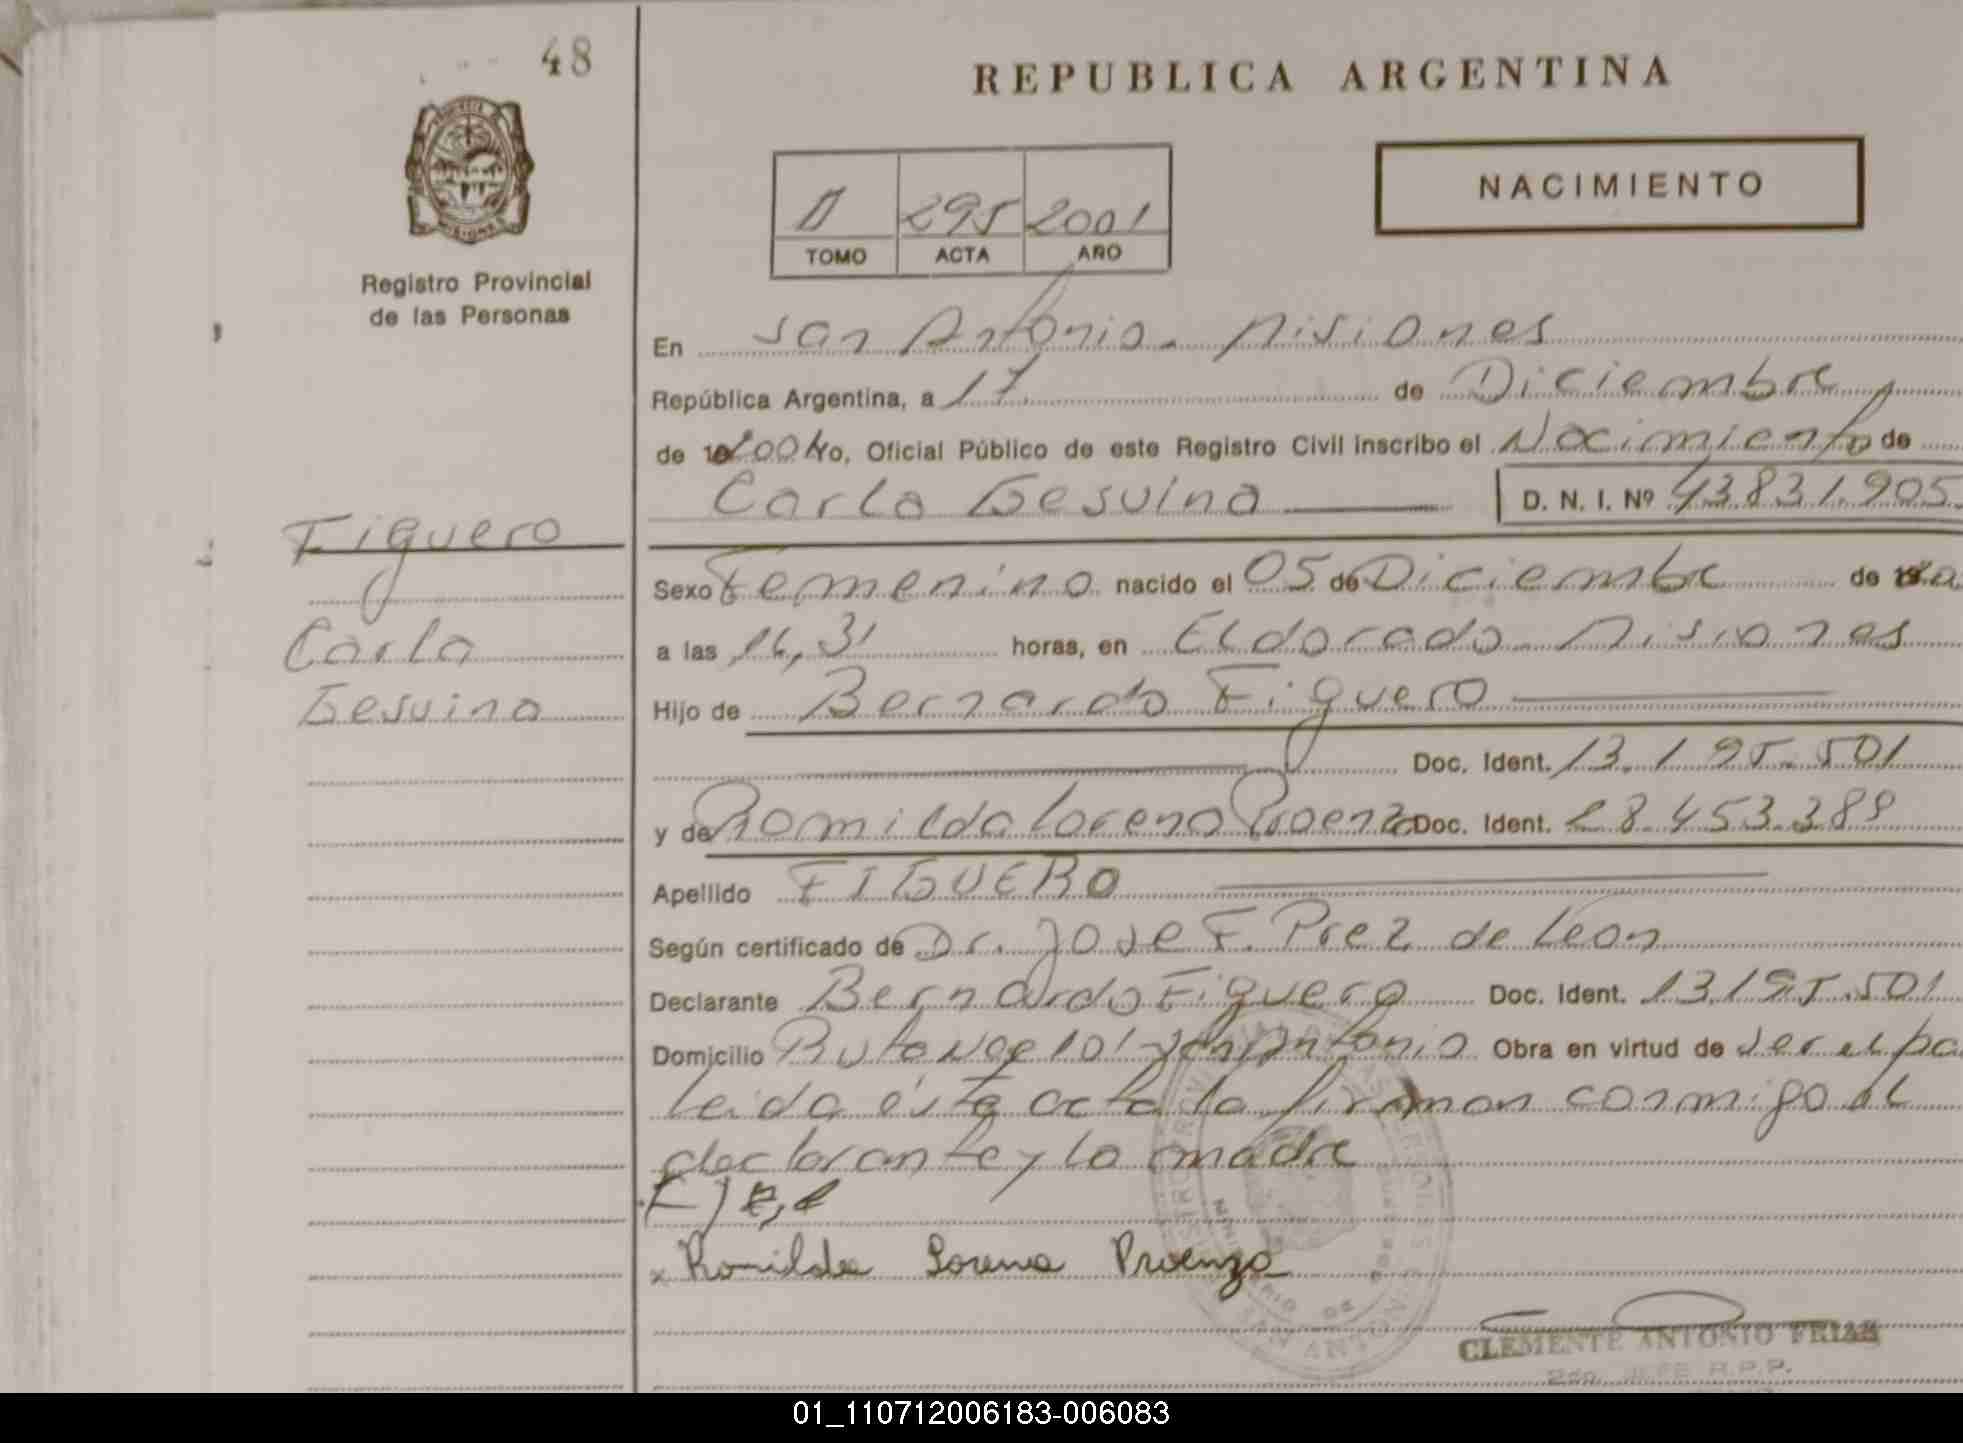 48
REPUBLICA ARGENTINA
NACIMIENTO
295 2001
TOMO ACTA AÑO
Registro Provincial
de las Personas
En San Antonio - Misiones
República Argentina, a 17 de Diciembre
de Yo, Oficial Público de este Registro Civil inscribo el Nacimiento de
Carla Gesuina D. N. I. Nº 43.831.905
Figuero
Carla
Gesuina
Sexo Femenino nacido el 05 de Diciembre de
a las 16,31 horas, en Eldorado - Misiones
Hijo de Bernardo Figuero
Doc. Ident. 13.195.501
y de Romilda Lorena Proenza Doc. Ident. 28.453.389
Apellido FIGUERO
Según certificado de Dr. Jose F. Prez de Leon
Declarante Bernardo Figuero Doc. Ident. 13.195.501
Domicilio Ruta 101 San Antonio Obra en virtud de ser el pa
leida ésta acta la firman conmigo el
declarante y la madre
Romilda Lorena Proenza
CLEMENTE ANTONIO FRIAS
2do. JEFE R.P.P.
01_110712006183-006083